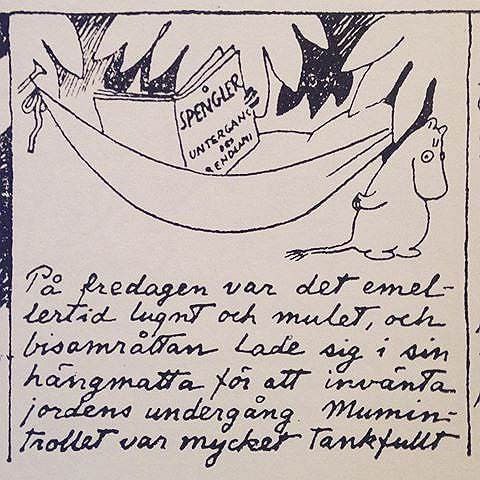 SPENGLER
UNTERGANG
DES
På fredagen var det emel-
lertid lugnt och mulet, och
bisamråttan lade sig i sin
hängmatta för att invänta
jordens undergång. Mumin-
trollet var mycket tankfullt